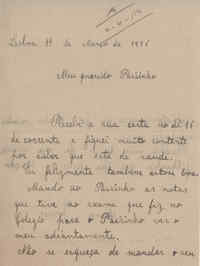 Lisboa 11 de Março de 19
Meu querido Paisinho
Recebi a sua carta no dia 15
de corrente e fiquei muito contente
por saber que está de saude.
Eu felizmente também estou boa.
Mando ao Paisinho as notas
que tive ao exame que fiz no
Colegio para o Paisinho ver o
meu adiantamento.
Não se esqueça de mandar o seu